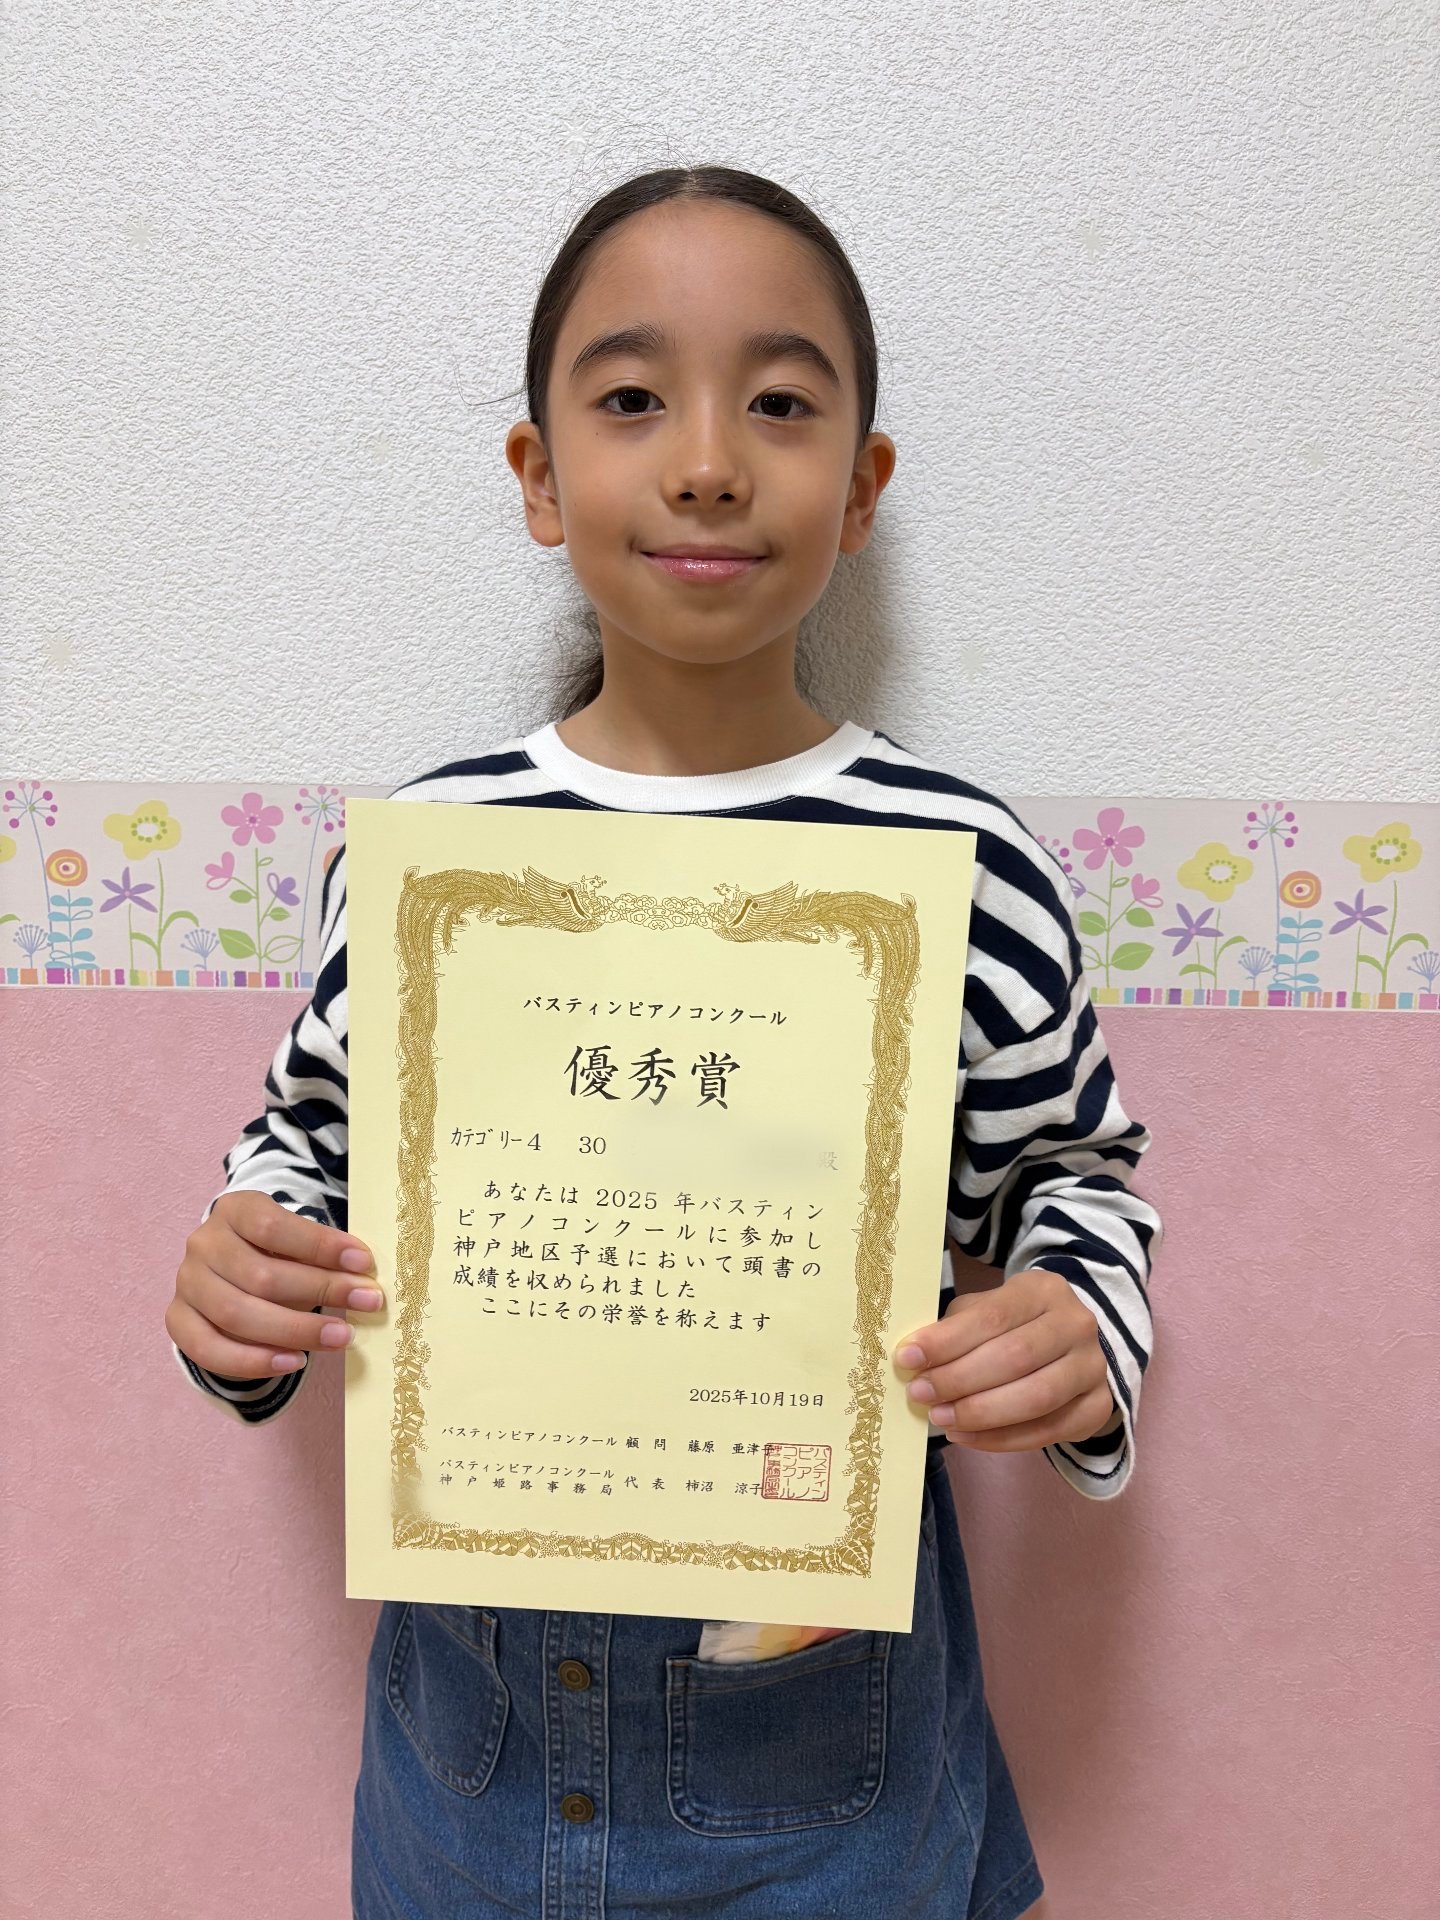 バスティンピアノコンクール
優秀賞
カテゴリー4 30 殿
あなたは 2025 年バスティン
ピアノコンクールに参加し
神戸地区予選において頭書の
成績を収められました
ここにその栄誉を称えます
2025年10月19日
バスティンピアノコンクール 顧 問 藤原 亜津子
バスティンピアノコンクール
神戸姫路事務局 代 表 柿沼 涼子
バスティン
ピアノ
コンクール